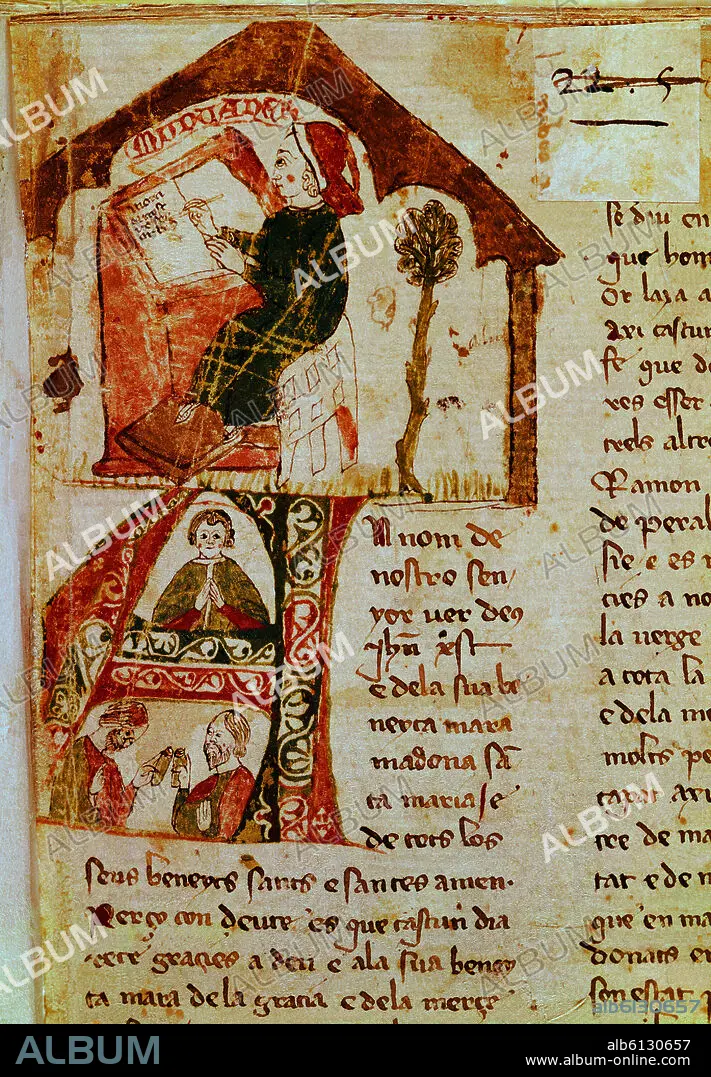 MUNTANER
22 . 5
A nom de
nostro sen
yor ver deus
ihu xst
e dela sua be
neyta mara
madona sa
ta maria e
de tots los
seus beneyts sants e santes amen.
Perço con deute es que cascun dia
rete gracies a deu e ala sua beney
ta mara de la gracia e de la merçe
se diu en
que hom
Or laxa a
axi cascun
fe que de
xes esser
trels altre
Ramon
de peral
sie e es
cies a no
la verge
a tota la
e dela me
molts pe
capat axi
tre de ma
tat e de
que en ma
donats en
son estat
ALBUM
alb6130657
ALBUM
alb6130657
www.album-online.com